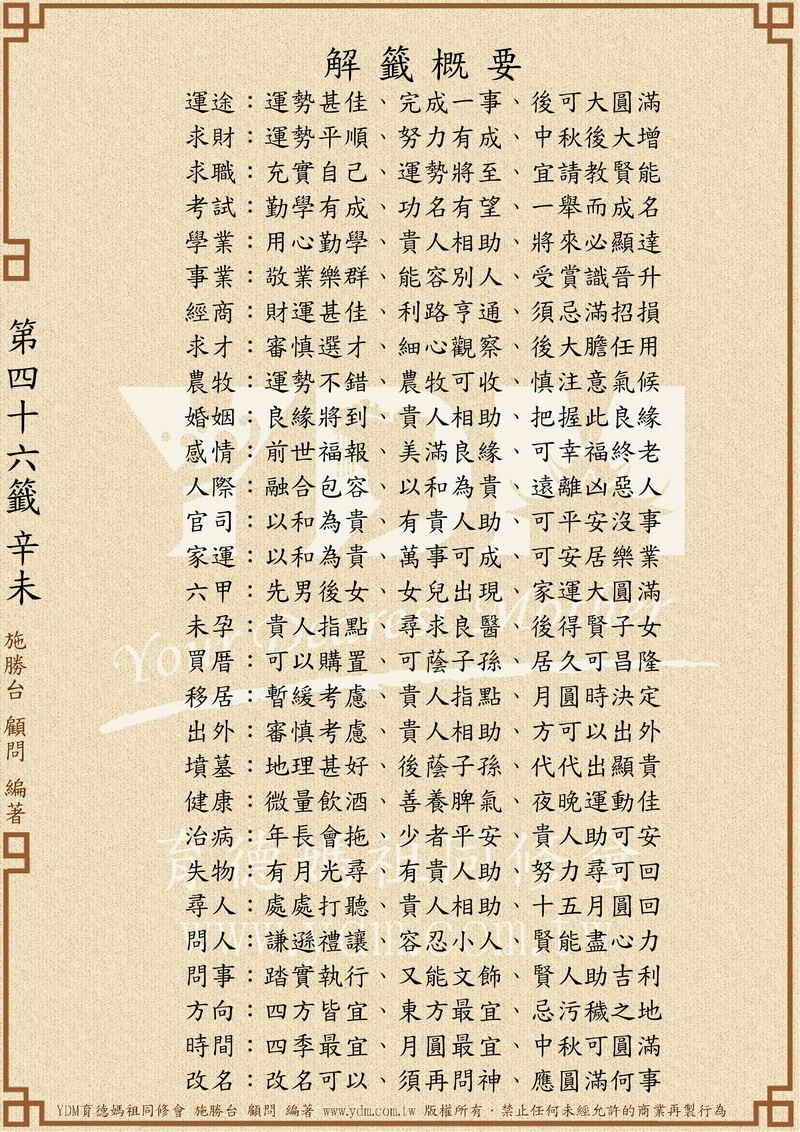 解籤概要
運途：運勢甚佳、完成一事、後可大圓滿
求財：運勢平順、努力有成、中秋後大增
求職：充實自己、運勢將至、宜請教賢能
考試：勤學有成、功名有望、一舉而成名
學業：用心勤學、貴人相助、將來必顯達
事業：敬業樂群、能容別人、受賞識晉升
經商：財運甚佳、利路亨通、須忌滿招損
求才：審慎選才、細心觀察、後大膽任用
農牧：運勢不錯、農牧可收、慎注意氣候
婚姻：良緣將到、貴人相助、把握此良緣
感情：前世福報、美滿良緣、可幸福終老
人際：融合包容、以和為貴、遠離凶惡人
官司：以和為貴、有貴人助、可平安沒事
家運：以和為貴、萬事可成、可安居樂業
六甲：先男後女、女兒出現、家運大圓滿
未孕：貴人指點、尋求良醫、後得賢子女
買厝：可以購置、可蔭子孫、居久可昌隆
移居：暫緩考慮、貴人指點、月圓時決定
出外：審慎考慮、貴人相助、方可以出外
墳墓：地理甚好、後蔭子孫、代代出顯貴
健康：微量飲酒、善養脾氣、夜晚運動佳
治病：年長會拖、少者平安、貴人助可安
失物：有月光尋、有貴人助、努力尋可回
尋人：處處打聽、貴人相助、十五月圓回
問人：謙遜禮讓、容忍小人、賢能盡心力
問事：踏實執行、又能文飾、賢人助吉利
方向：四方皆宜、東方最宜、忌污穢之地
時間：四季最宜、月圓最宜、中秋可圓滿
改名：改名可以、須再問神、應圓滿何事
第四十六籤 辛未
施勝台 顧問 編著
YDM
Your Dearest Mother
育德媽祖同修會
www.ydm.com.tw
YDM育德媽祖同修會 施勝台 顧問 編著 www.ydm.com.tw 版權所有．禁止任何未經允許的商業再製行為